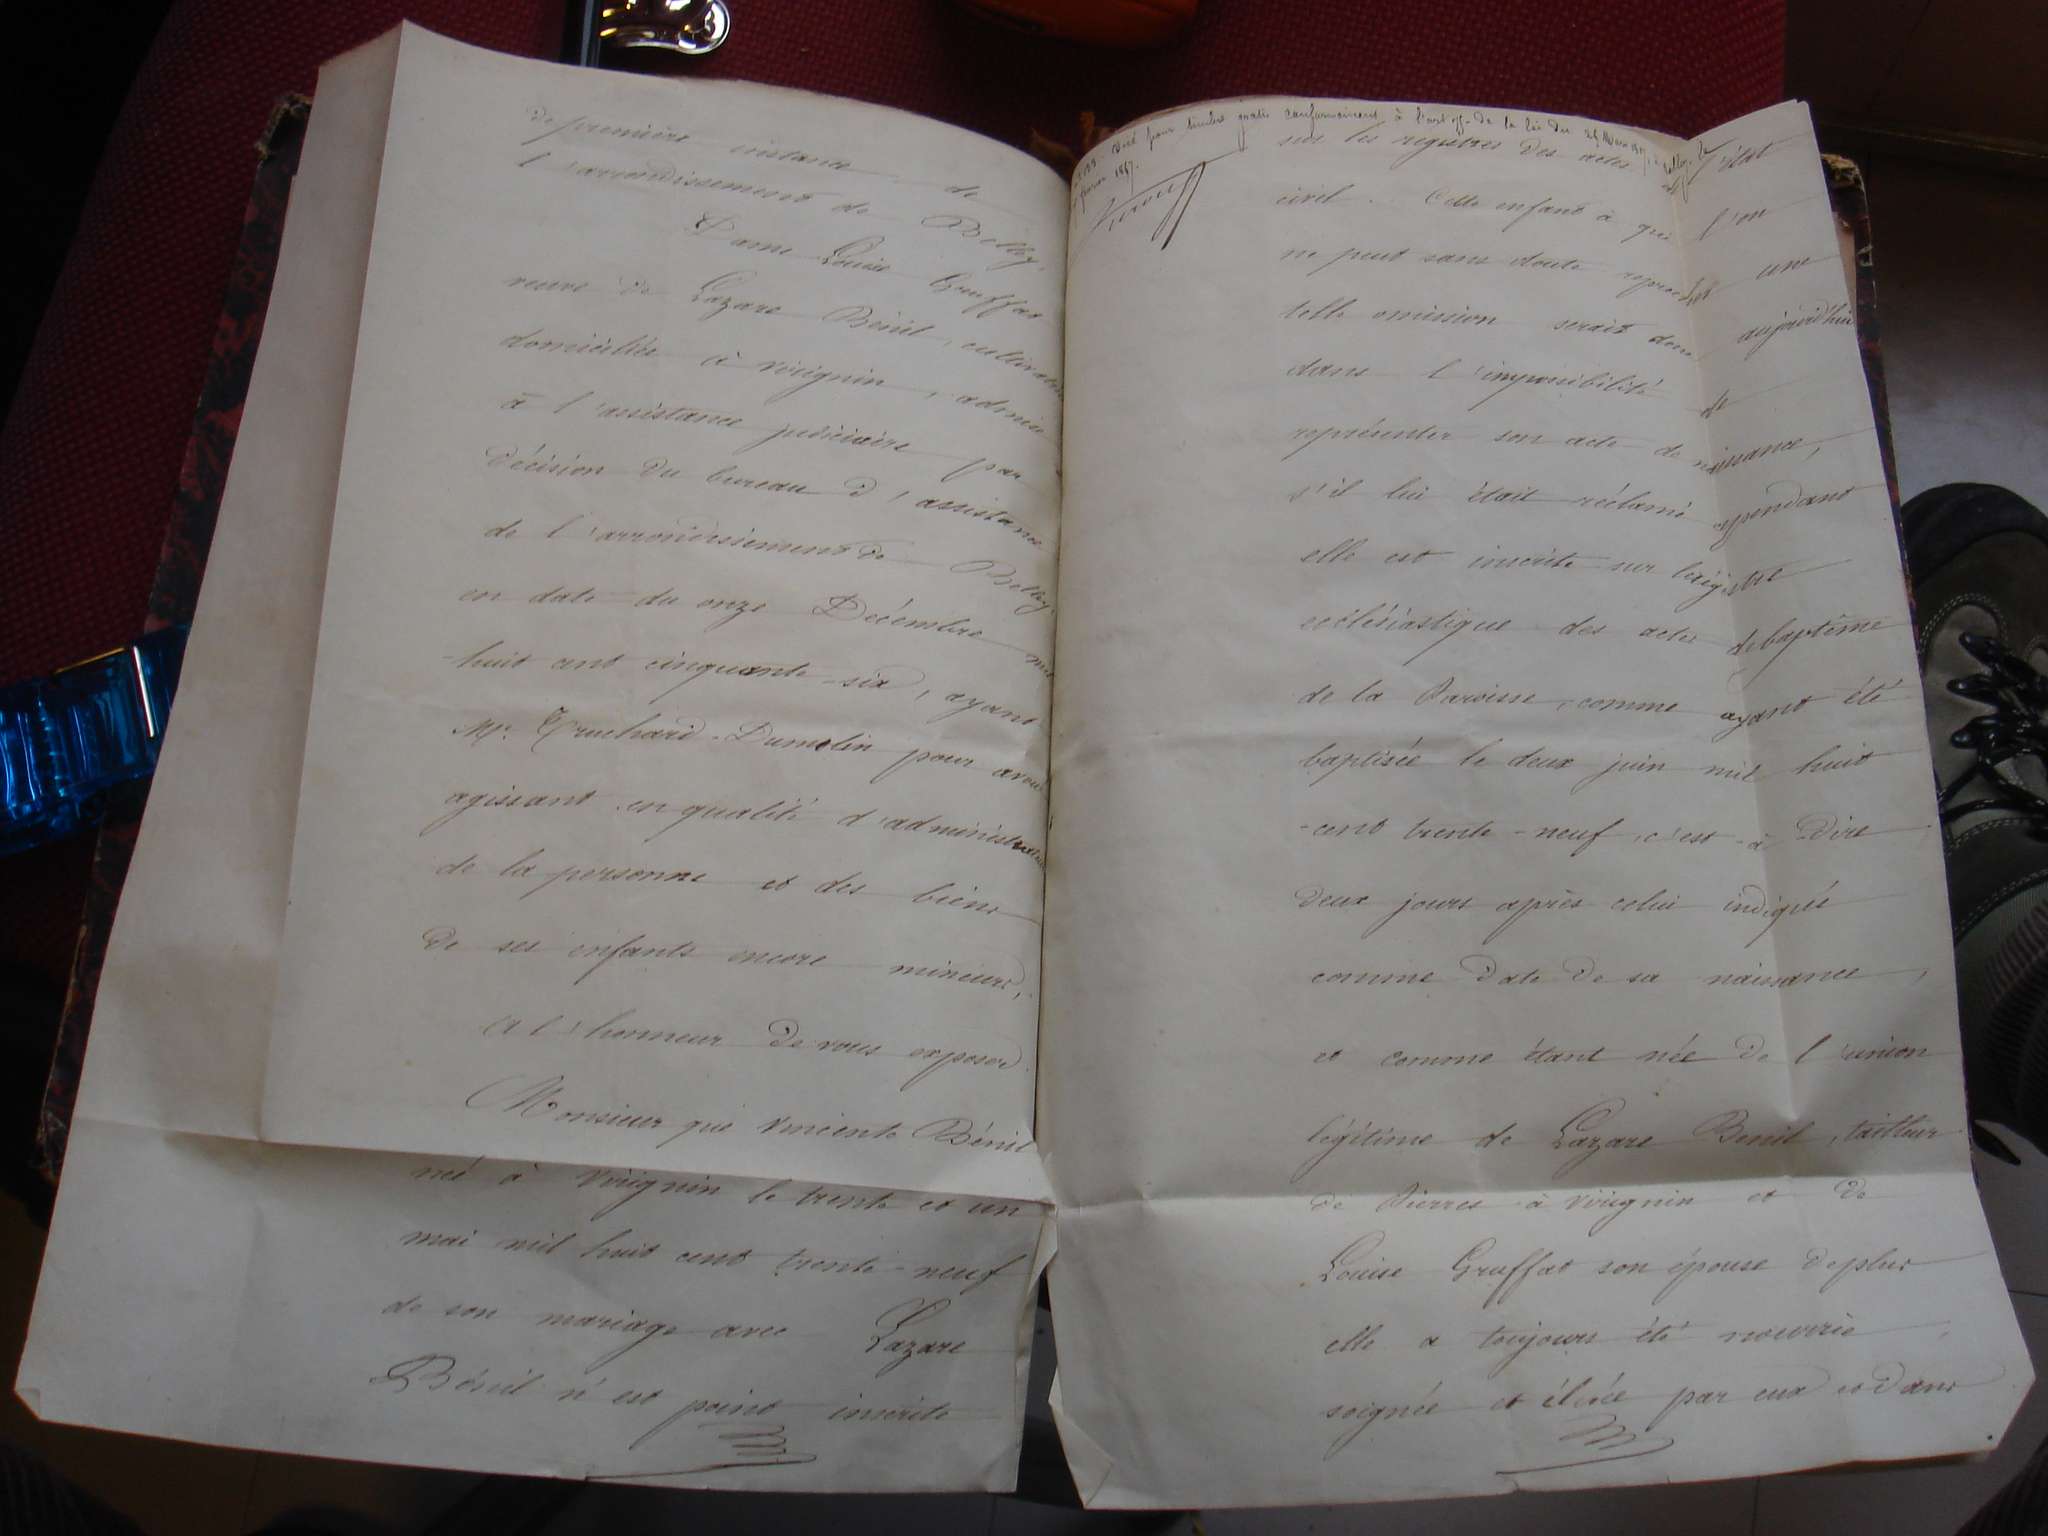 de première instance de
l'arrondissement de Belley,
Dame Louise Gruffat
veuve de Lazare Bénil, cultivatrice
domiciliée à virignin, admise
à l'assistance judiciaire par
décision du bureau d'assistance
de l'arrondissement de Belley,
en date du onze Décembre mil
-huit cent cinquante-six, ayant
Mr. Truchard-Dumolin pour avoué
agissant en qualité d'administratrice
de la personne et des biens
de ses enfants encore mineurs,
a l'honneur de vous exposer
Monsieur que vincente Bénil
née à virignin le trente et un
mai mil huit cent trente-neuf
de son mariage avec Lazare
Bénil n'est point inscrite
Visé pour timbre gratis conformément à l'art de la loi du 25 Mars
février 1857.
sur les registres des actes de l'état
civil. Cette enfant à qui l'on
ne peut sans doute reprocher une
telle omission serait donc aujourd'hui
dans l'impossibilité de
représenter son acte de naissance,
s'il lui était réclamé cependant
elle est inscrite sur le régistre
ecclésiastique des actes de baptême
de la Paroisse, comme ayant été
baptisée le deux juin mil huit
-cent trente-neuf, c'est-à-dire
deux jours après celui indiqué
comme date de sa naissance,
et comme étant née de l'union
légitime de Lazare Benil, tailleur
de Pierres à virignin et de
Louise Gruffat son épouse deplus
elle a toujours été nourrie
soignée et élevée par eux et dans